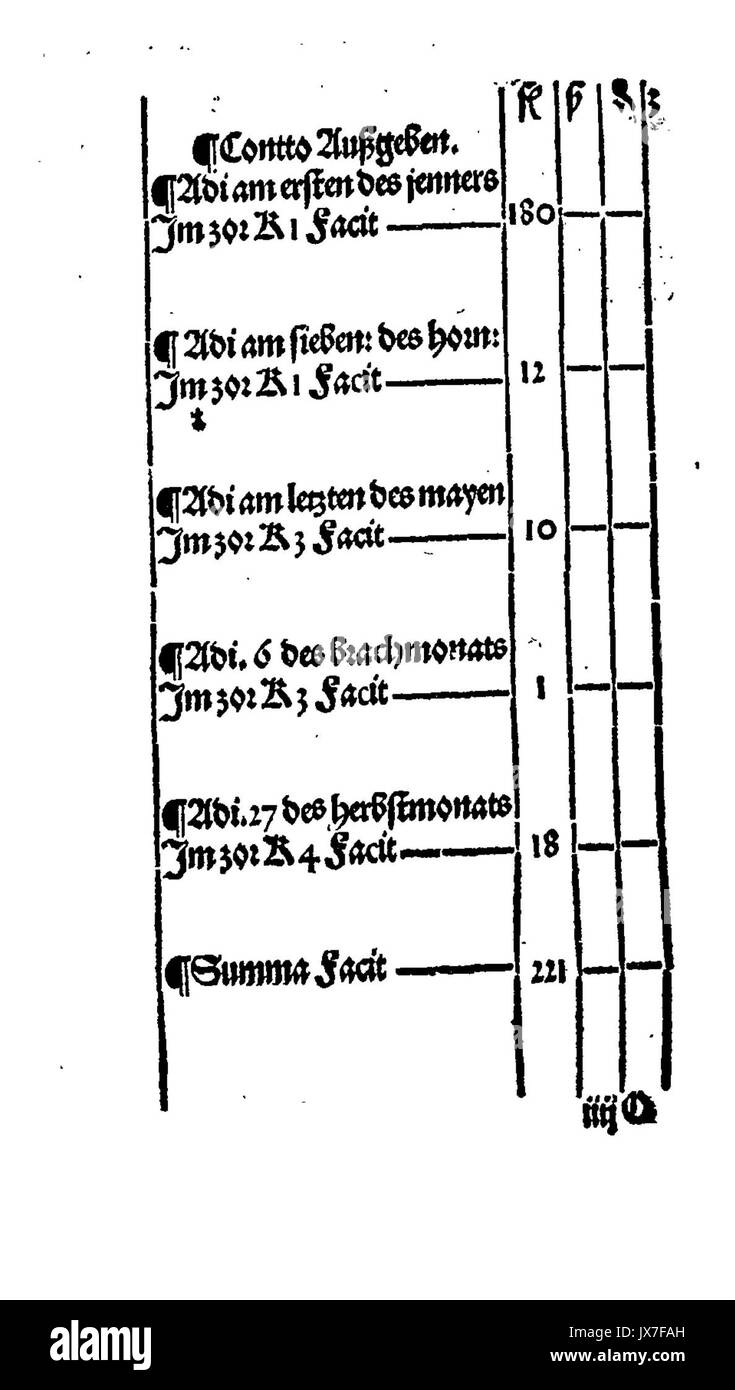 fl ß ₰ ꝫ
¶Contto Außgeben.
¶Adi am ersten des jenners
Jm ꝫoꝛ K 1 Facit 180
¶Adi am sieben: des horn:
Jm ꝫoꝛ K 1 Facit 12
¶Adi am letzten des mayen
Jm ꝫoꝛ K 3 Facit 10
¶Adi. 6 des Brachmonats
Jm ꝫoꝛ K 3 Facit 1
¶Adi. 27 des herbstmonats
Jm ꝫoꝛ K 4 Facit 18
¶Summa Facit 221
iiij
alamy
Image ID: JX7FAH
www.alamy.com